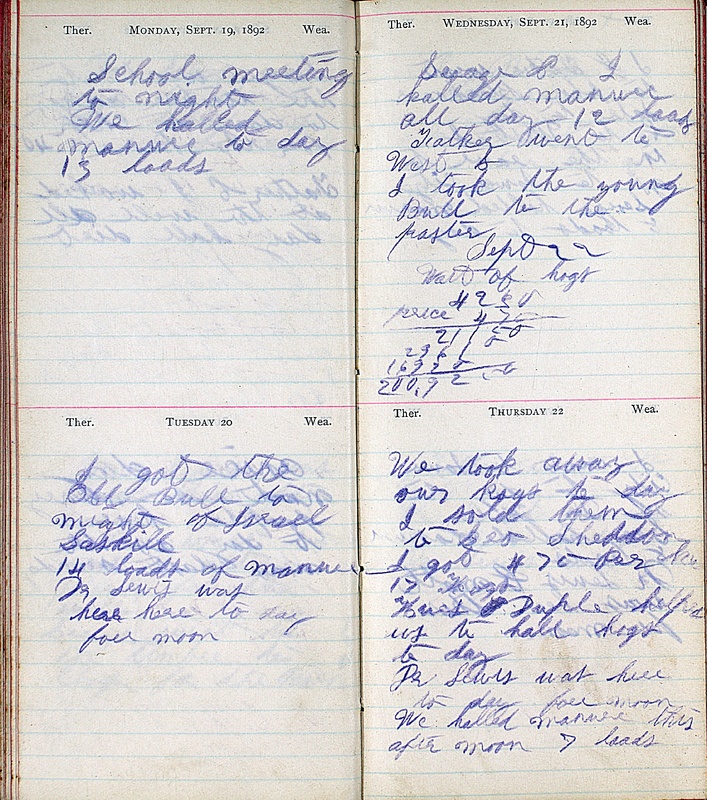 Ther. MONDAY, SEPT. 19, 1892 Wea.
School meeting
to night
We halled
manure to day
13 loads
Ther. TUESDAY 20 Wea.
I got the
Old Bull to
night of Israel
Gaskill
14 loads of manure
Dr Lewis was
here here to day
fore moon
Ther. WEDNESDAY, SEPT. 21, 1892 Wea.
& I
halled manure
all day 12 loads
Father went to
West
I took the young
Bull to the
paster
Sept 22
Wait of hogs
price
Ther. THURSDAY 22 Wea.
We took away
our hogs to day
I sold them
to Geo Sheddon
I got 4 75 Per
17 hogs
helps
us to hall hogs
to day
Dr Lewis wat here
to day fore moon
We halled manure this
after moon 7 loads